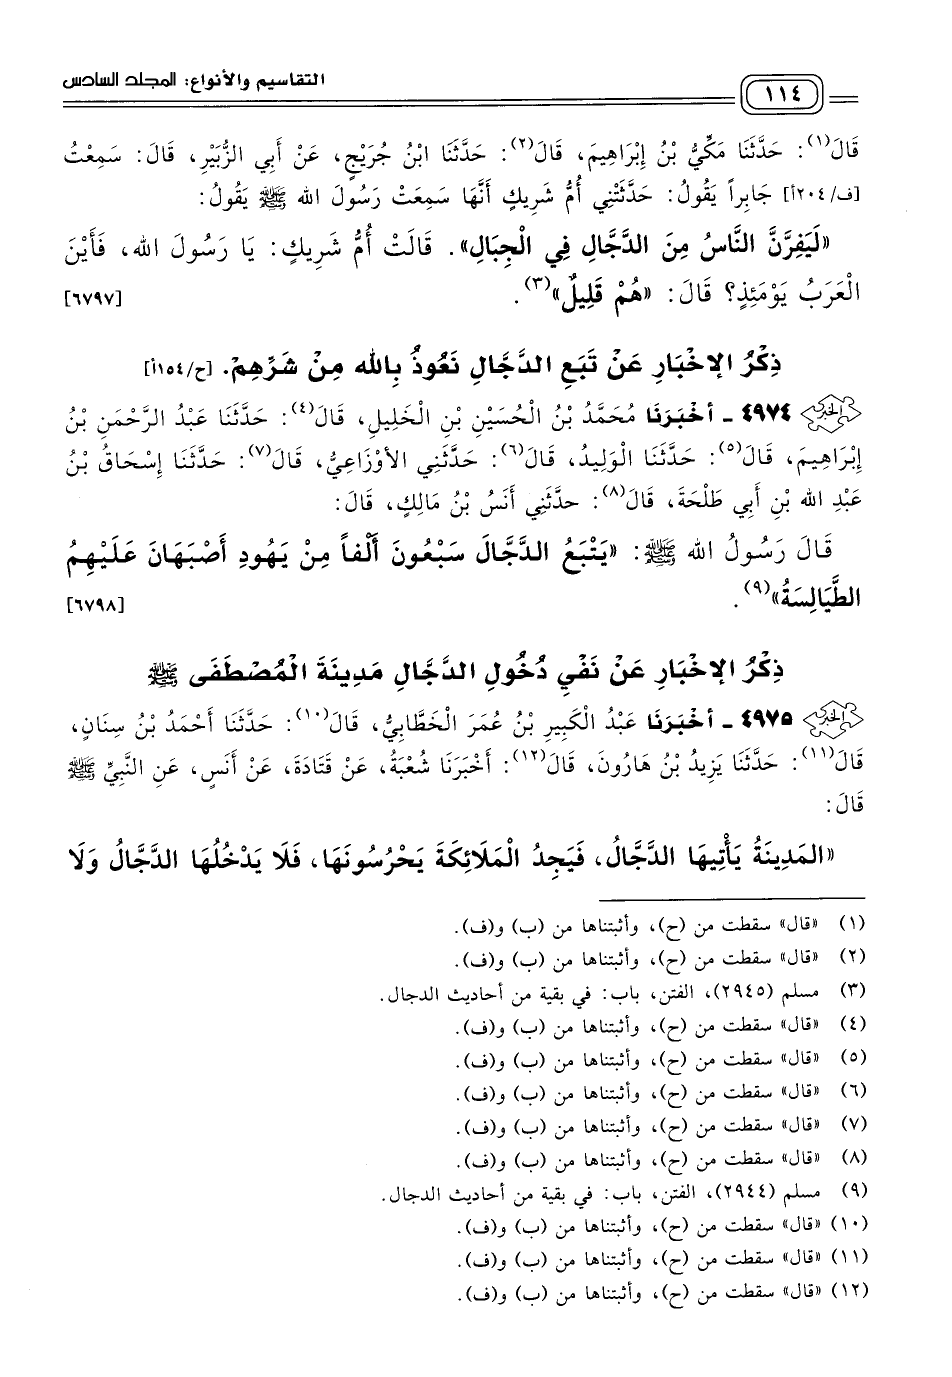 ١١٤ التقاسيم والأنواع: المجلد السادس
قَالَ(١): حَدَّثَنَا مَكِّيُّ بْنُ إِبْرَاهِيمَ، قَالَ(٢): حَدَّثَنَا ابْنُ جُرَيْجٍ، عَنْ أَبِي الزُّبَيْرِ، قَالَ: سَمِعْتُ
[ف/٢٠٤أ] جَابِراً يَقُولُ: حَدَّثَتْنِي أُمُّ شَرِيكٍ أَنَّهَا سَمِعَتْ رَسُولَ الله ﷺ يَقُولُ:
«لَيَفِرَّنَّ النَّاسُ مِنَ الدَّجَّالِ فِي الْجِبَالِ». قَالَتْ أُمُّ شَرِيكٍ: يَا رَسُولَ الله، فَأَيْنَ
الْعَرَبُ يَوْمَئِذٍ؟ قَالَ: «هُمْ قَلِيلٌ»(٣). [٦٧٩٧]
ذِكْرُ الإخْبَارِ عَنْ تَبَعِ الدَّجَّالِ نَعُوذُ بِالله مِنْ شَرِّهِمْ. [ح/١٥٤أ]
الخبر ٤٩٧٤ ـ أخْبَرَنَا مُحَمَّدُ بْنُ الْحُسَيْنِ بْنِ الْخَلِيلِ، قَالَ(٤): حَدَّثَنَا عَبْدُ الرَّحْمَنِ بْنُ
إِبْرَاهِيمَ، قَالَ(٥): حَدَّثَنَا الْوَلِيدُ، قَالَ(٦): حَدَّثَنِي الأَوْزَاعِيُّ، قَالَ(٧): حَدَّثَنَا إِسْحَاقُ بْنُ
عَبْدِ الله بْنِ أَبِي طَلْحَةَ، قَالَ(٨): حدَّثَنِي أَنَسُ بْنُ مَالِكٍ، قَالَ:
قَالَ رَسُولُ الله ﷺ: «يَتْبَعُ الدَّجَّالَ سَبْعُونَ أَلْفاً مِنْ يَهُودِ أَصْبَهَانَ عَلَيْهِمُ
الطَّيَالِسَةُ»(٩). [٦٧٩٨]
ذِكْرُ الإخْبَارِ عَنْ نَفْيِ دُخُولِ الدَّجَّالِ مَدِينَةَ الْمُصْطَفَى ﷺ
الخبر ٤٩٧٥ ـ أخْبَرَنَا عَبْدُ الْكَبِيرِ بْنُ عُمَرَ الْخَطَّابِيُّ، قَالَ(١٠): حَدَّثَنَا أَحْمَدُ بْنُ سِنَانٍ،
قَالَ(١١): حَدَّثَنَا يَزِيدُ بْنُ هَارُونَ، قَالَ(١٢): أَخْبَرَنَا شُعْبَةُ، عَنْ قَتَادَةَ، عَنْ أَنَسٍ، عَنِ النَّبِيِّ ﷺ
قَالَ:
«المَدِينَةُ يَأْتِيهَا الدَّجَّالُ، فَيَجِدُ الْمَلَائِكَةَ يَحْرُسُونَهَا، فَلَا يَدْخُلُهَا الدَّجَّالُ وَلَا
(١) «قال» سقطت من (ح)، وأثبتناها من (ب) و(ف).
(٢) «قال» سقطت من (ح)، وأثبتناها من (ب) و(ف).
(٣) مسلم (٢٩٤٥)، الفتن، باب: في بقية من أحاديث الدجال.
(٤) «قال» سقطت من (ح)، وأثبتناها من (ب) و(ف).
(٥) «قال» سقطت من (ح)، وأثبتناها من (ب) و(ف).
(٦) «قال» سقطت من (ح)، وأثبتناها من (ب) و(ف).
(٧) «قال» سقطت من (ح)، وأثبتناها من (ب) و(ف).
(٨) «قال» سقطت من (ح)، وأثبتناها من (ب) و(ف).
(٩) مسلم (٢٩٤٤)، الفتن، باب: في بقية من أحاديث الدجال.
(١٠) «قال» سقطت من (ح)، وأثبتناها من (ب) و(ف).
(١١) «قال» سقطت من (ح)، وأثبتناها من (ب) و(ف).
(١٢) «قال» سقطت من (ح)، وأثبتناها من (ب) و(ف).